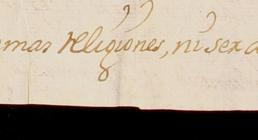 mas religiones, ni sex